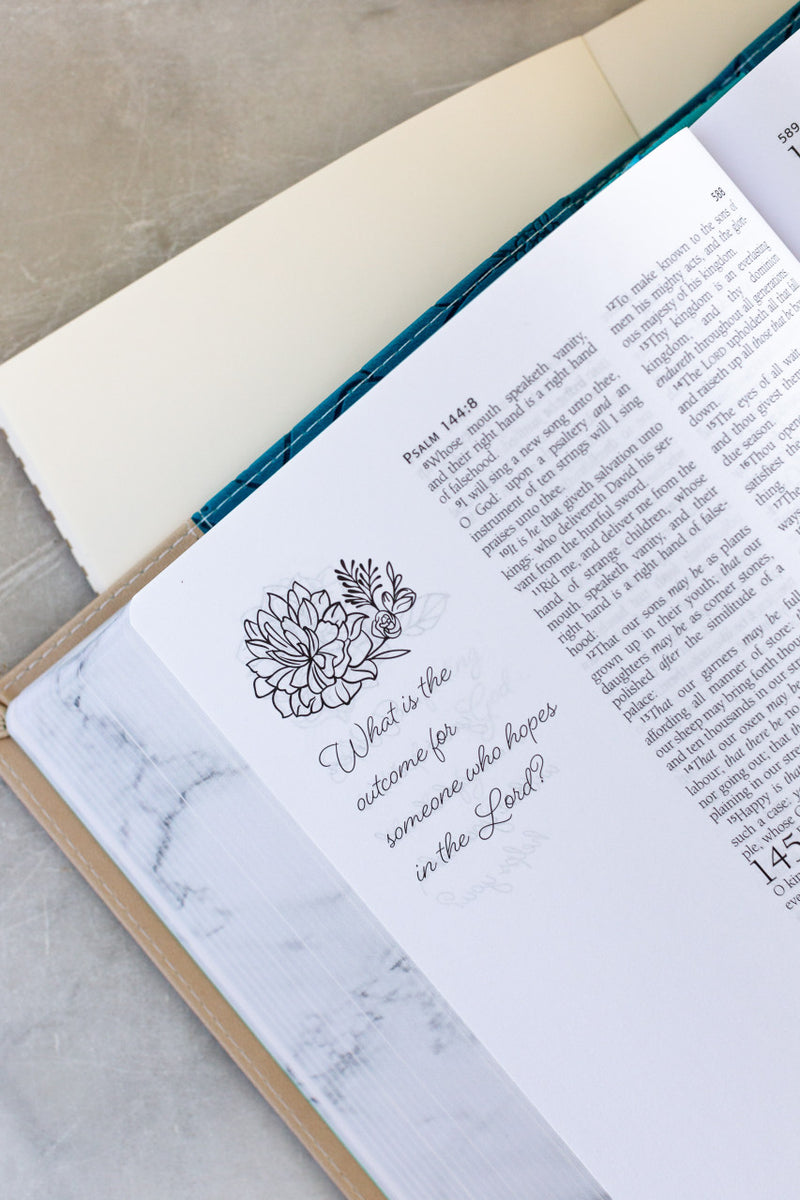 588
589
PSALM 144:8
8Whose mouth speaketh vanity,
and their right hand is a right hand
of falsehood.
9I will sing a new song unto thee,
O God: upon a psaltery and an
instrument of ten strings will I sing
praises unto thee.
10It is he that giveth salvation unto
kings: who delivereth David his ser-
vant from the hurtful sword.
11Rid me, and deliver me from the
hand of strange children, whose
mouth speaketh vanity, and their
right hand is a right hand of false-
hood:
12That our sons may be as plants
grown up in their youth; that our
daughters may be as corner stones,
polished after the similitude of a
palace:
13That our garners may be full,
affording all manner of store:
our sheep may bring forth thou
and ten thousands in our stre
14That our oxen may be
labour; that there be no
nor going out; that the
plaining in our stre
15Happy is tha
such a case:
ple, whose
145
O kin
12To make known to the sons of
men his mighty acts, and the glori-
ous majesty of his kingdom.
13Thy kingdom is an everlasting
kingdom, and thy dominion
endureth throughout all generations
14The LORD upholdeth all that fall
and raiseth up all those that be
down.
15The eyes of all wait
and thou givest the
due season.
16Thou open
satisfiest the
thing.
What is the
outcome for
someone who hopes
in the Lord?